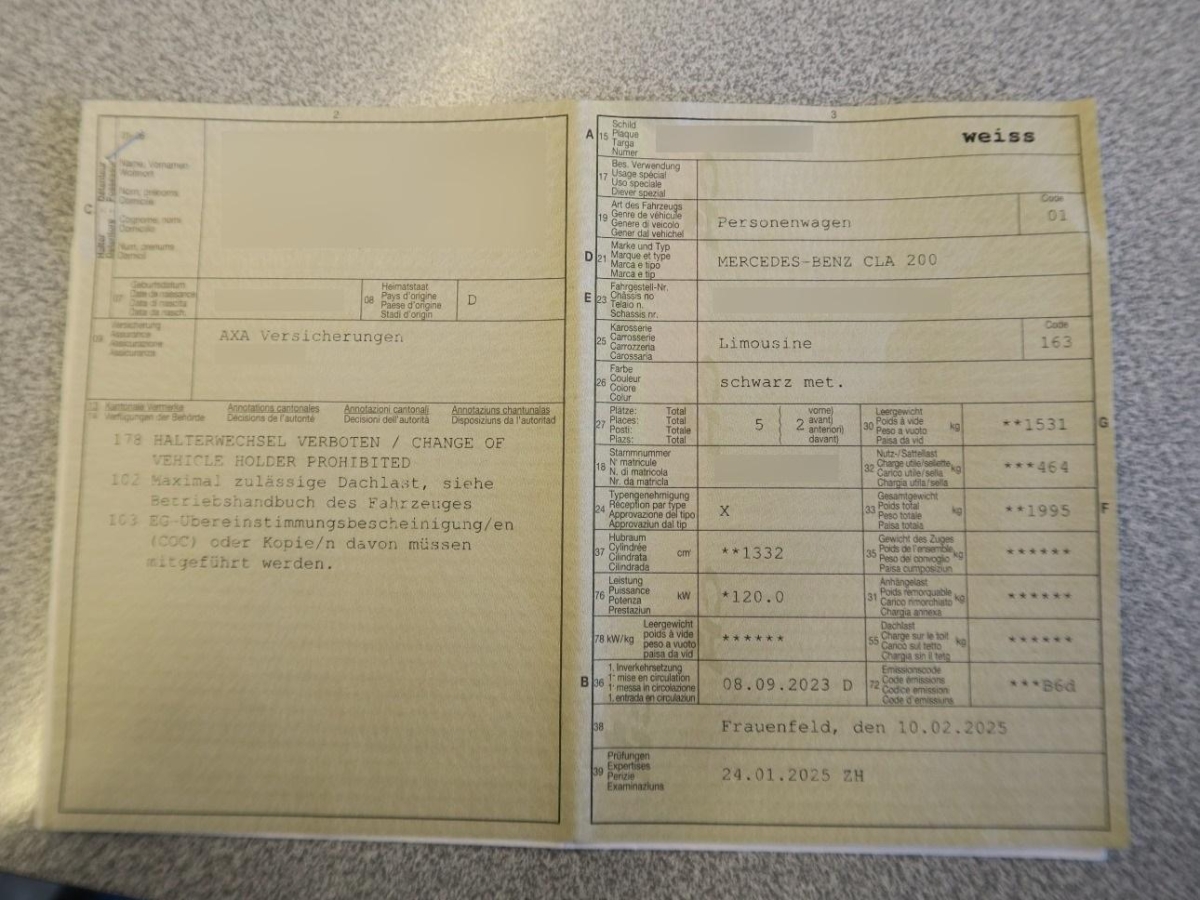 2
Name, Vornamen
Wohnort
Nom, prénoms
Domicile
Cognome, nomi
Domicilio
Num, prenums
Domicil
C
07
Geburtsdatum
Date de naissance
Data di nascita
Data da nasch.
08
Heimatstaat
Pays d'origine
Paese d'origine
Stadi d'origin
D
09
Versicherung
Assurance
Assicurazione
Assicuranza
AXA Versicherungen
Kantonale Vermerke
Verfügungen der Behörde
Annotations cantonales
Décisions de l'autorité
Annotazioni cantonali
Decisioni dell'autorità
Annotaziuns chantunalas
Disposiziuns da l'autoritad
178 HALTERWECHSEL VERBOTEN / CHANGE OF
VEHICLE HOLDER PROHIBITED
102 Maximal zulässige Dachlast, siehe
Betriebshandbuch des Fahrzeuges
103 EG-Übereinstimmungsbescheinigung/en
(COC) oder Kopie/n davon müssen
mitgeführt werden.
3
A 15
Schild
Plaque
Targa
Numer
weiss
17
Bes. Verwendung
Usage spécial
Uso speciale
Diever spezial
19
Art des Fahrzeugs
Genre de véhicule
Genere di veicolo
Gener dal vehichel
Personenwagen
Code
01
D 21
Marke und Typ
Marque et type
Marca e tipo
Marca e tip
MERCEDES-BENZ CLA 200
E 23
Fahrgestell-Nr.
Châssis no
Telaio n.
Schassis nr.
25
Karosserie
Carrosserie
Carrozzeria
Carossaria
Limousine
Code
163
26
Farbe
Couleur
Colore
Colur
schwarz met.
27
Plätze: Total
Places: Total
Posti: Totale
Plazs: Total
5 { 2
vorne)
avant)
anteriori)
davant)
30
Leergewicht
Poids à vide
Peso a vuoto
Paisa da vid
kg
**1531
G
18
Stammnummer
N° matricule
N. di matricola
Nr. da matricla
32
Nutz-/Sattellast
Charge utile/sellette
Carico utile/sella
Chargia utila/sella
kg
***464
24
Typengenehmigung
Réception par type
Approvazione del tipo
Approvaziun dal tip
X
33
Gesamtgewicht
Poids total
Peso totale
Paisa totala
kg
**1995
F
37
Hubraum
Cylindrée
Cilindrata
Cilindrada
cm³
**1332
35
Gewicht des Zuges
Poids de l'ensemble
Peso del convoglio
Paisa cumposiziun
kg
******
76
Leistung
Puissance
Potenza
Prestaziun
kW
*120.0
31
Anhängelast
Poids remorquable
Carico rimorchiato
Chargia annexa
kg
******
78 kW/kg
Leergewicht
poids à vide
peso a vuoto
paisa da vid
******
55
Dachlast
Charge sur le toit
Carico sul tetto
Chargia sin il tetg
kg
******
B 36
1. Inverkehrsetzung
1re mise en circulation
1a messa in circolazione
1. entrada en circulaziun
08.09.2023 D
72
Emissionscode
Code émissions
Codice emissioni
Code d'emissiuns
***B6d
38
Frauenfeld, den 10.02.2025
39
Prüfungen
Expertises
Perizie
Examinaziuns
24.01.2025 ZH